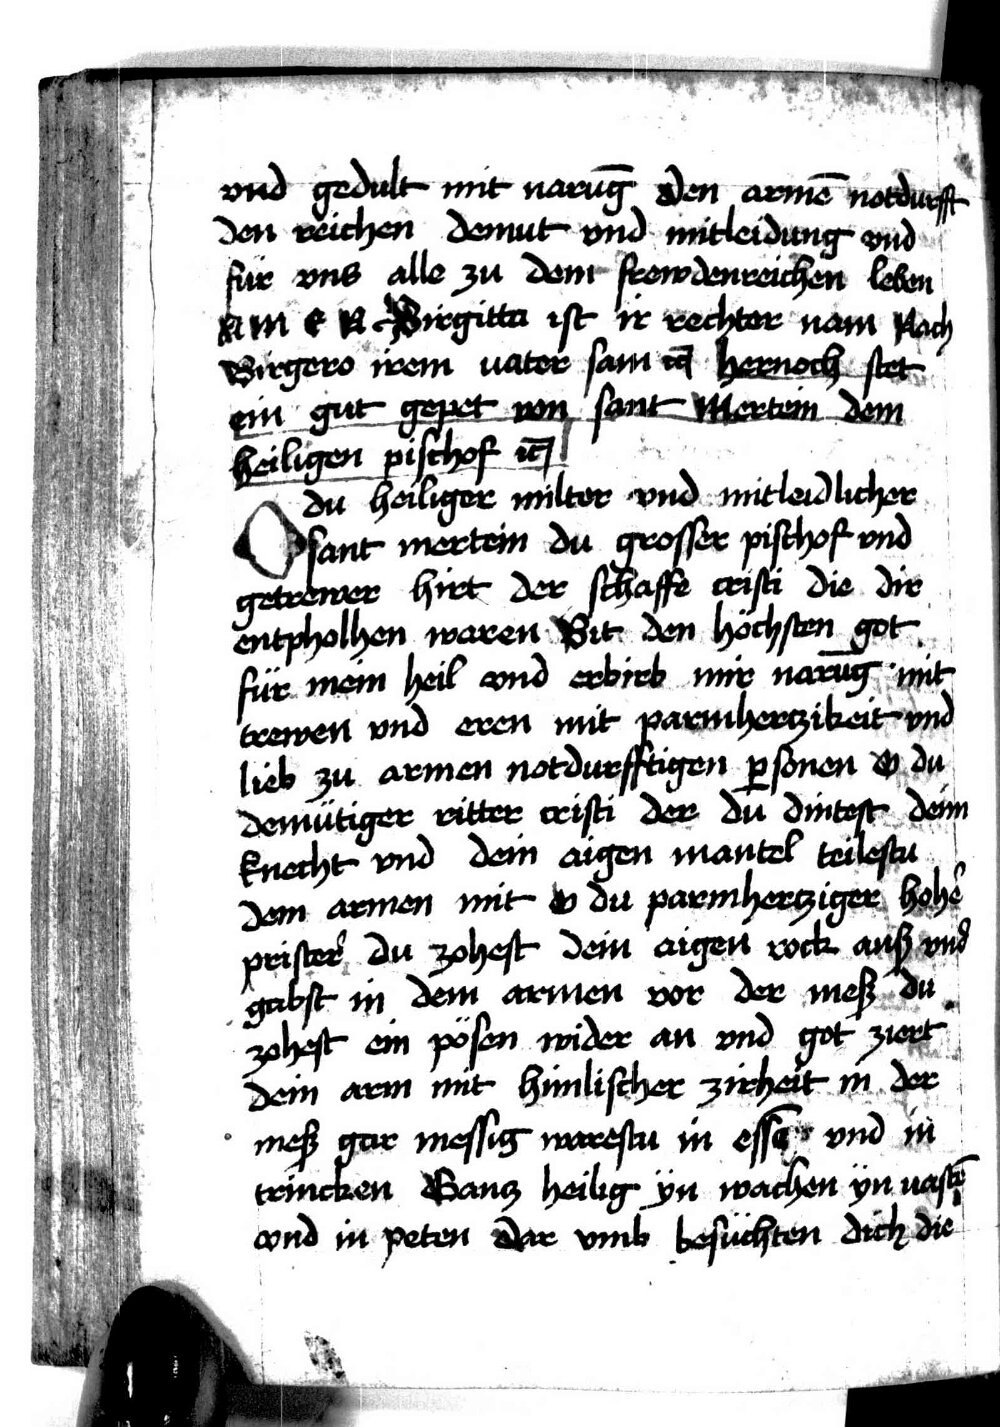 vnd gedult mit narūg Den armē notdurfft
den reichen demut vnd mitleidung vnd
für vns alle zu dem frewdenreichen leben
A M E N Birgitta ist ir rechter nam Nach
Birgero irem uater sam ꝛc hernoch stet
ein gut gepet von sant Mertein dem
heiligen pischof ꝛc
O du heiliger milter vnd mitleidlicher
sant mertein du grosser pischof vnd
getrewer hirt der schaffe cristi die dir
entpholhen waren Bit den höchsten got
für mein heil vnd erbirb mir narūg mit
trewen vnd eren mit parmhertzikeit vnd
lieb zu armen notdurfftigen ꝑsonen O du
demütiger ritter cristi der du dintest deim
knecht vnd dein aigen mantel teilestu
dem armen mit O du parmhertziger hohe͛
prister͛ du zohest dein aigen rock auß vnd
gabst in dem armen vor der meß du
zohest ein pösen wider an vnd got ziert
dein arm mit himlischer zirheit in der
meß gar messig warestu in essē vnd in
trincken Gantz heilig ÿn wachen ÿn uastē
vnd in peten Dar vmb besüchten dich die